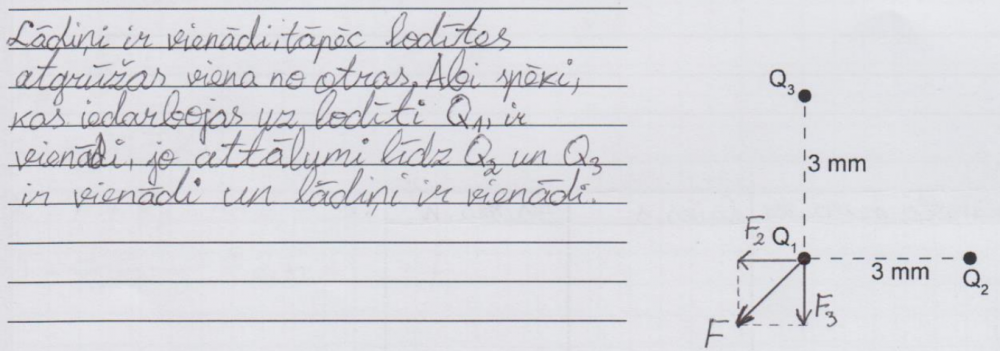 Lādiņi ir vienādi, tāpēc lodītes
atgrūžas viena no otras. Abi spēki,
kas iedarbojas uz lodīti Q₁, ir
vienādi, jo attālumi līdz Q₂ un Q₃
ir vienādi un lādiņi ir vienādi.
Q₃
3 mm
F₂ Q₁
3 mm
Q₂
F₃
F